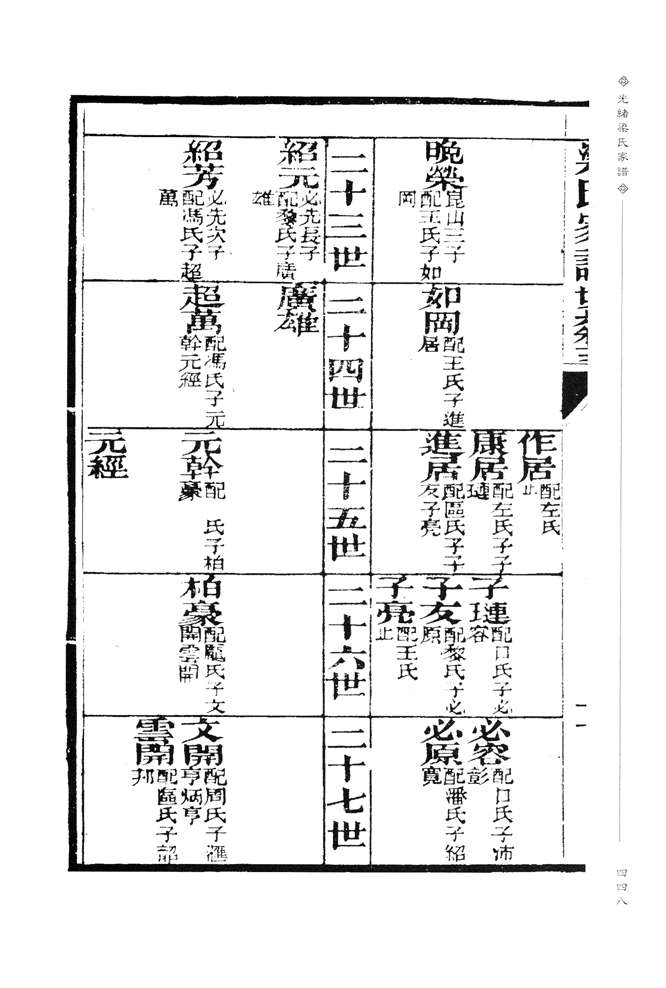 光緒梁氏家譜
四四八
梁氏家譜
晚榮
崑山三子
配王氏子如
岡
如岡
配王氏子進
居
作居
配左氏
止
康居
配左氏子子
璉
進居
配區氏子子
友子亮
子璉
配口氏子必
容
子友
配黎氏子必
原
子亮
配王氏
止
必容
配口氏子沛
彭
必原
配潘氏子紹
寬
二十三世
二十四世
二十五世
二十六世
二十七世
紹元
必先長子
配黎氏子廣
雄
紹芳
必先次子
配馮氏子超
萬
廣雄
超萬
配馮氏子元
幹元經
元幹
配 氏子柏
豪
元經
柏豪
配龐氏子文
開雲開
文開
配周氏子滙
亨炳亨
雲開
配區氏子韶
邦